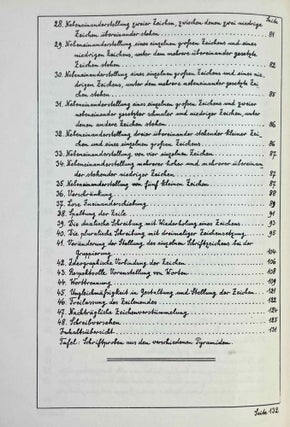 Seite
28. Nebeneinanderstellung zweier Zeichen, zwischen denen zwei niedrige
Zeichen übereinander stehen 81
29. Nebeneinanderstellung eines einzelnen großen Zeichens und eines
niedrigen Zeichens, unter dem mehrere übereinander gesetzte
Zeichen stehen 82
30. Nebeneinanderstellung eines einzelnen großen Zeichens und eines nie-
drigen Zeichens, unter dem mehrere nebeneinander gesetzte Zei-
chen stehen 85
31. Nebeneinanderstellung eines einzelnen großen Zeichens und zweier
nebeneinander gesetzter schmaler und niedriger Zeichen, unter
denen andere Zeichen stehen 86
32. Nebeneinanderstellung dreier übereinander stehender kleiner Zei-
chen und eines einzelnen großen Zeichens 86
33. Nebeneinanderstellung von vier einzelnen Zeichen 87
34. Nebeneinanderstellung mehrerer hoher und mehrerer übereinan-
der stehender niedriger Zeichen 87
35. Nebeneinanderstellung von fünf kleinen Zeichen 87
36. Verschränkung 88
37. Lose Ineinanderschiebung 89
38. Spaltung der Zeile 91
39. Die dualische Schreibung mit Wiederholung eines Zeichens 93
40. Die pluralische Schreibung mit dreimaliger Zeichensetzung 95
41. Veränderung der Stellung des einzelnen Schriftzeichens bei der
Gruppierung 104
42. Ideographische Verbindung der Zeichen 106
43. Respektvolle Voranstellung von Worten 108
44. Worttrennung 109
45. Ungleichmäßigkeit in Gestaltung und Stellung der Zeichen 121
46. Freilassung des Zeilenendes 122
47. Nachträgliche Zeichenverstümmelung 124
48. Schreibversehen 125
Inhaltsübersicht 131
Tafel: Schriftproben aus den verschiedenen Pyramiden.
Seite 132